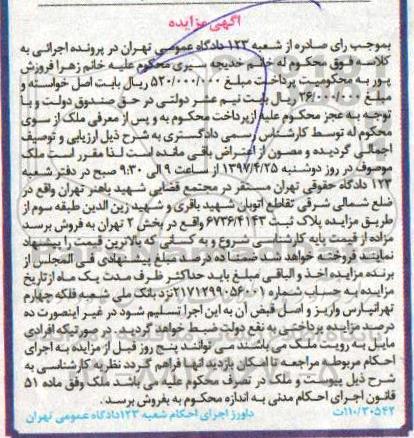 آگهی مزایده
بموجب رای صادره از شعبه ۱۲۳ دادگاه عمومی تهران در پرونده اجرائی به
کلاسه فوق محکوم له خانم خدیجه سیری محکوم علیه خانم زهرا فروزش
پور به محکومیت پرداخت مبلغ ۵۲۰/۰۰۰/۰۰۰ ریال بابت اصل خواسته و
مبلغ ۲۶/۰۰۰/۰۰۰ ریال بابت نیم عشر دولتی در حق صندوق دولت و با
توجه به عجز محکوم علیه از پرداخت محکوم به و پس از معرفی ملک از سوی
محکوم له توسط کارشناس رسمی دادگستری به شرح ذیل ارزیابی و توصیف
اجمالی گردیده و مصون از اعتراض باقی مانده است لذا مقرر است ملک
موصوف در روز دوشنبه ۱۳۹۷/۴/۲۵ از ساعت ۹ الی ۹:۳۰ صبح در دفتر شعبه
۱۲۳ دادگاه حقوقی تهران مستقر در مجتمع قضایی شهید باهنر تهران واقع در
ضلع شمالی شرقی تقاطع اتوبان شهید باقری و شهید زین الدین طبقه سوم از
طریق مزایده پلاک ثبت ۶۷۳۶/۴۱۴۳ واقع در بخش ۲ تهران به فروش برسد
مزاده از قیمت پایه کارشناسی شروع و به کسانی که بالاترین قیمت را پیشنهاد
نمایند فروخته خواهد شد ضمنا ده درصد مبلغ پیشنهادی فی المجلس از
برنده مزایده اخذ و الباقی مبلغ باید حداکثر ظرف مدت یک ماه از تاریخ
مزایده به حساب شماره ۲۱۷۱۲۹۹۰۵۶۰۰۱ نزد بانک ملی شعبه فلکه چهارم
تهرانپارس واریز و اصل قبض آن به این اجرا تسلیم شود در غیر اینصورت ده
درصد مزایده پرداختی به نفع دولت ضبط خواهد گردید. در صورتیکه افرادی
مایل به رویت ملک می باشند می توانند پنج روز قبل از مزایده به اجرای
احکام مربوطه مراجعه تا امکان بازدید آنها فراهم گردد نظریه کارشناسی به
شرح ذیل پیوست و ملک در تصرف محکوم علیه می باشد ملک وفق ماده ۵۱
قانون اجرای احکام مدنی به اندازه محکوم به بفروش برسد.
۱۱۰/۳۰۵۴۲ت داورز اجرای احکام شعبه ۱۲۳ دادگاه عمومی تهران